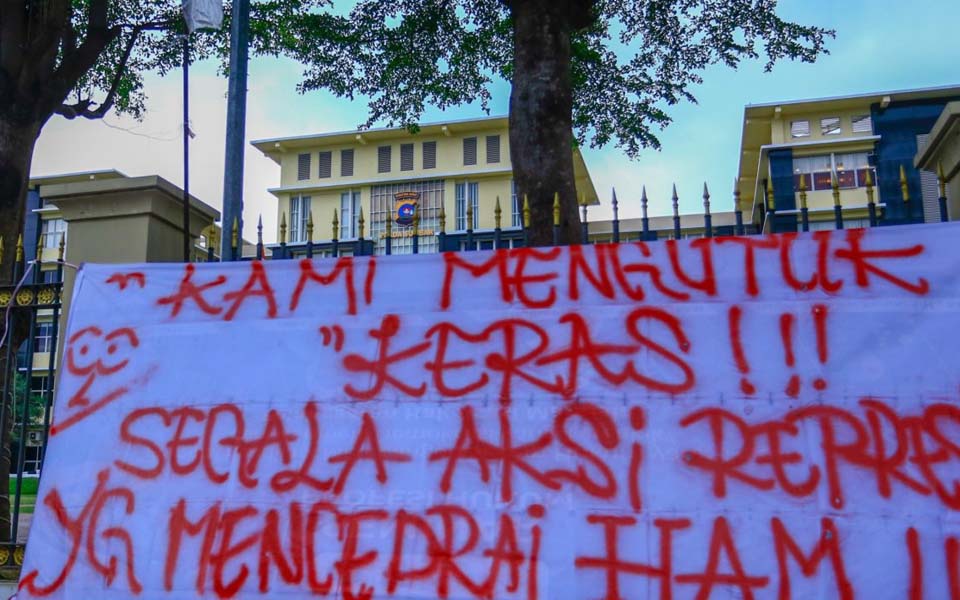 "KAMI MENGUTUK
"KERAS !!!
SEGALA AKSI REPRES
YG MENCEDRAI HAM !!